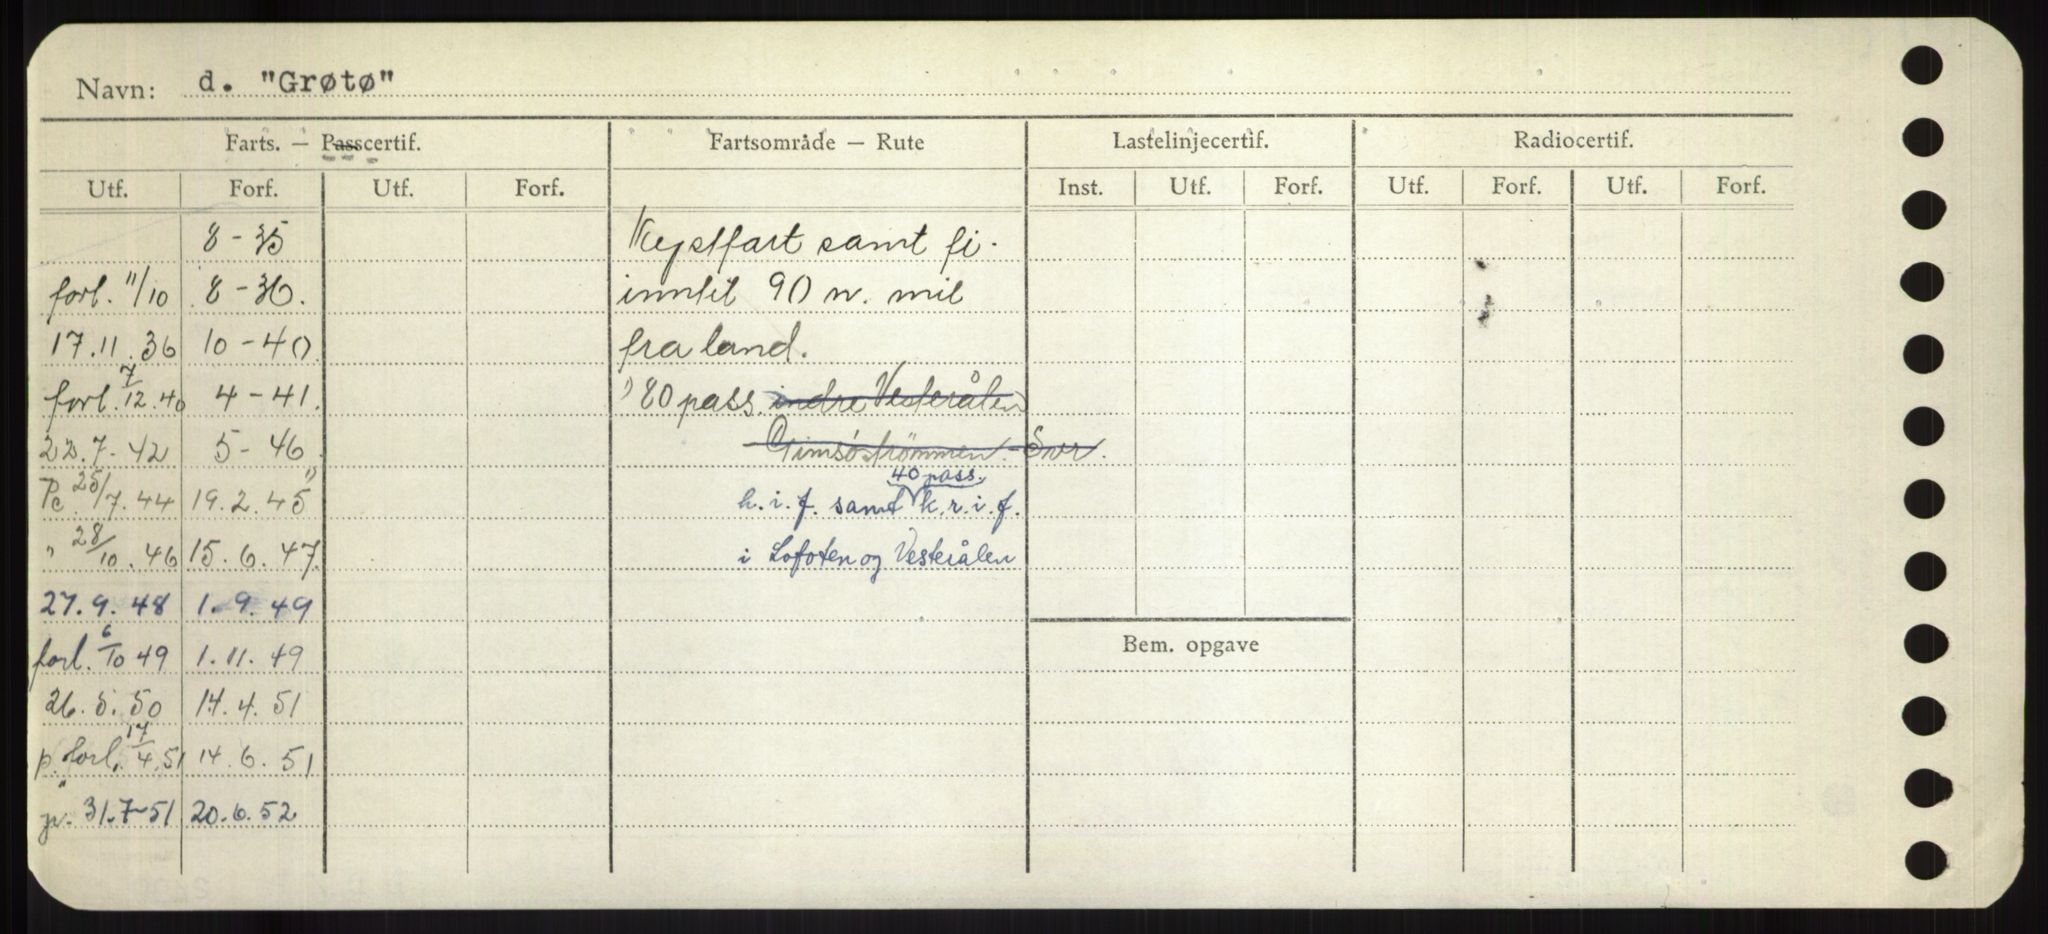 Navn: d. "Grøtø"
Farts. — Passcertif. Fartsområde — Rute Lastelinjecertif. Radiocertif.
Utf. Forf. Utf. Forf. Inst. Utf. Forf. Utf. Forf. Utf. Forf.
8 - 35 Kystfart samt fi.
forl. 11/10 8 - 36. inntil 90 n. mil
17.11.36 10 - 40 fra land.
forl. 7/12.40 4 - 41. 80 pass. indre Vesterålen
22.7.-42 5 - 46 Gimsöströmmen - Svr.
40 pass.
Pc 25/7.44 19.2.45 h.i.f. samt k.r.i.f.
" 28/10.46 15.6.47. i Lofoten og Vesterålen
27.9.48 1.9.49
forl. 6/10 49 1.11.49
Bem. opgave
26.5.50 14.4.51
p. forl. 17/4.51 14.6.51
31.7-51 20.6.52